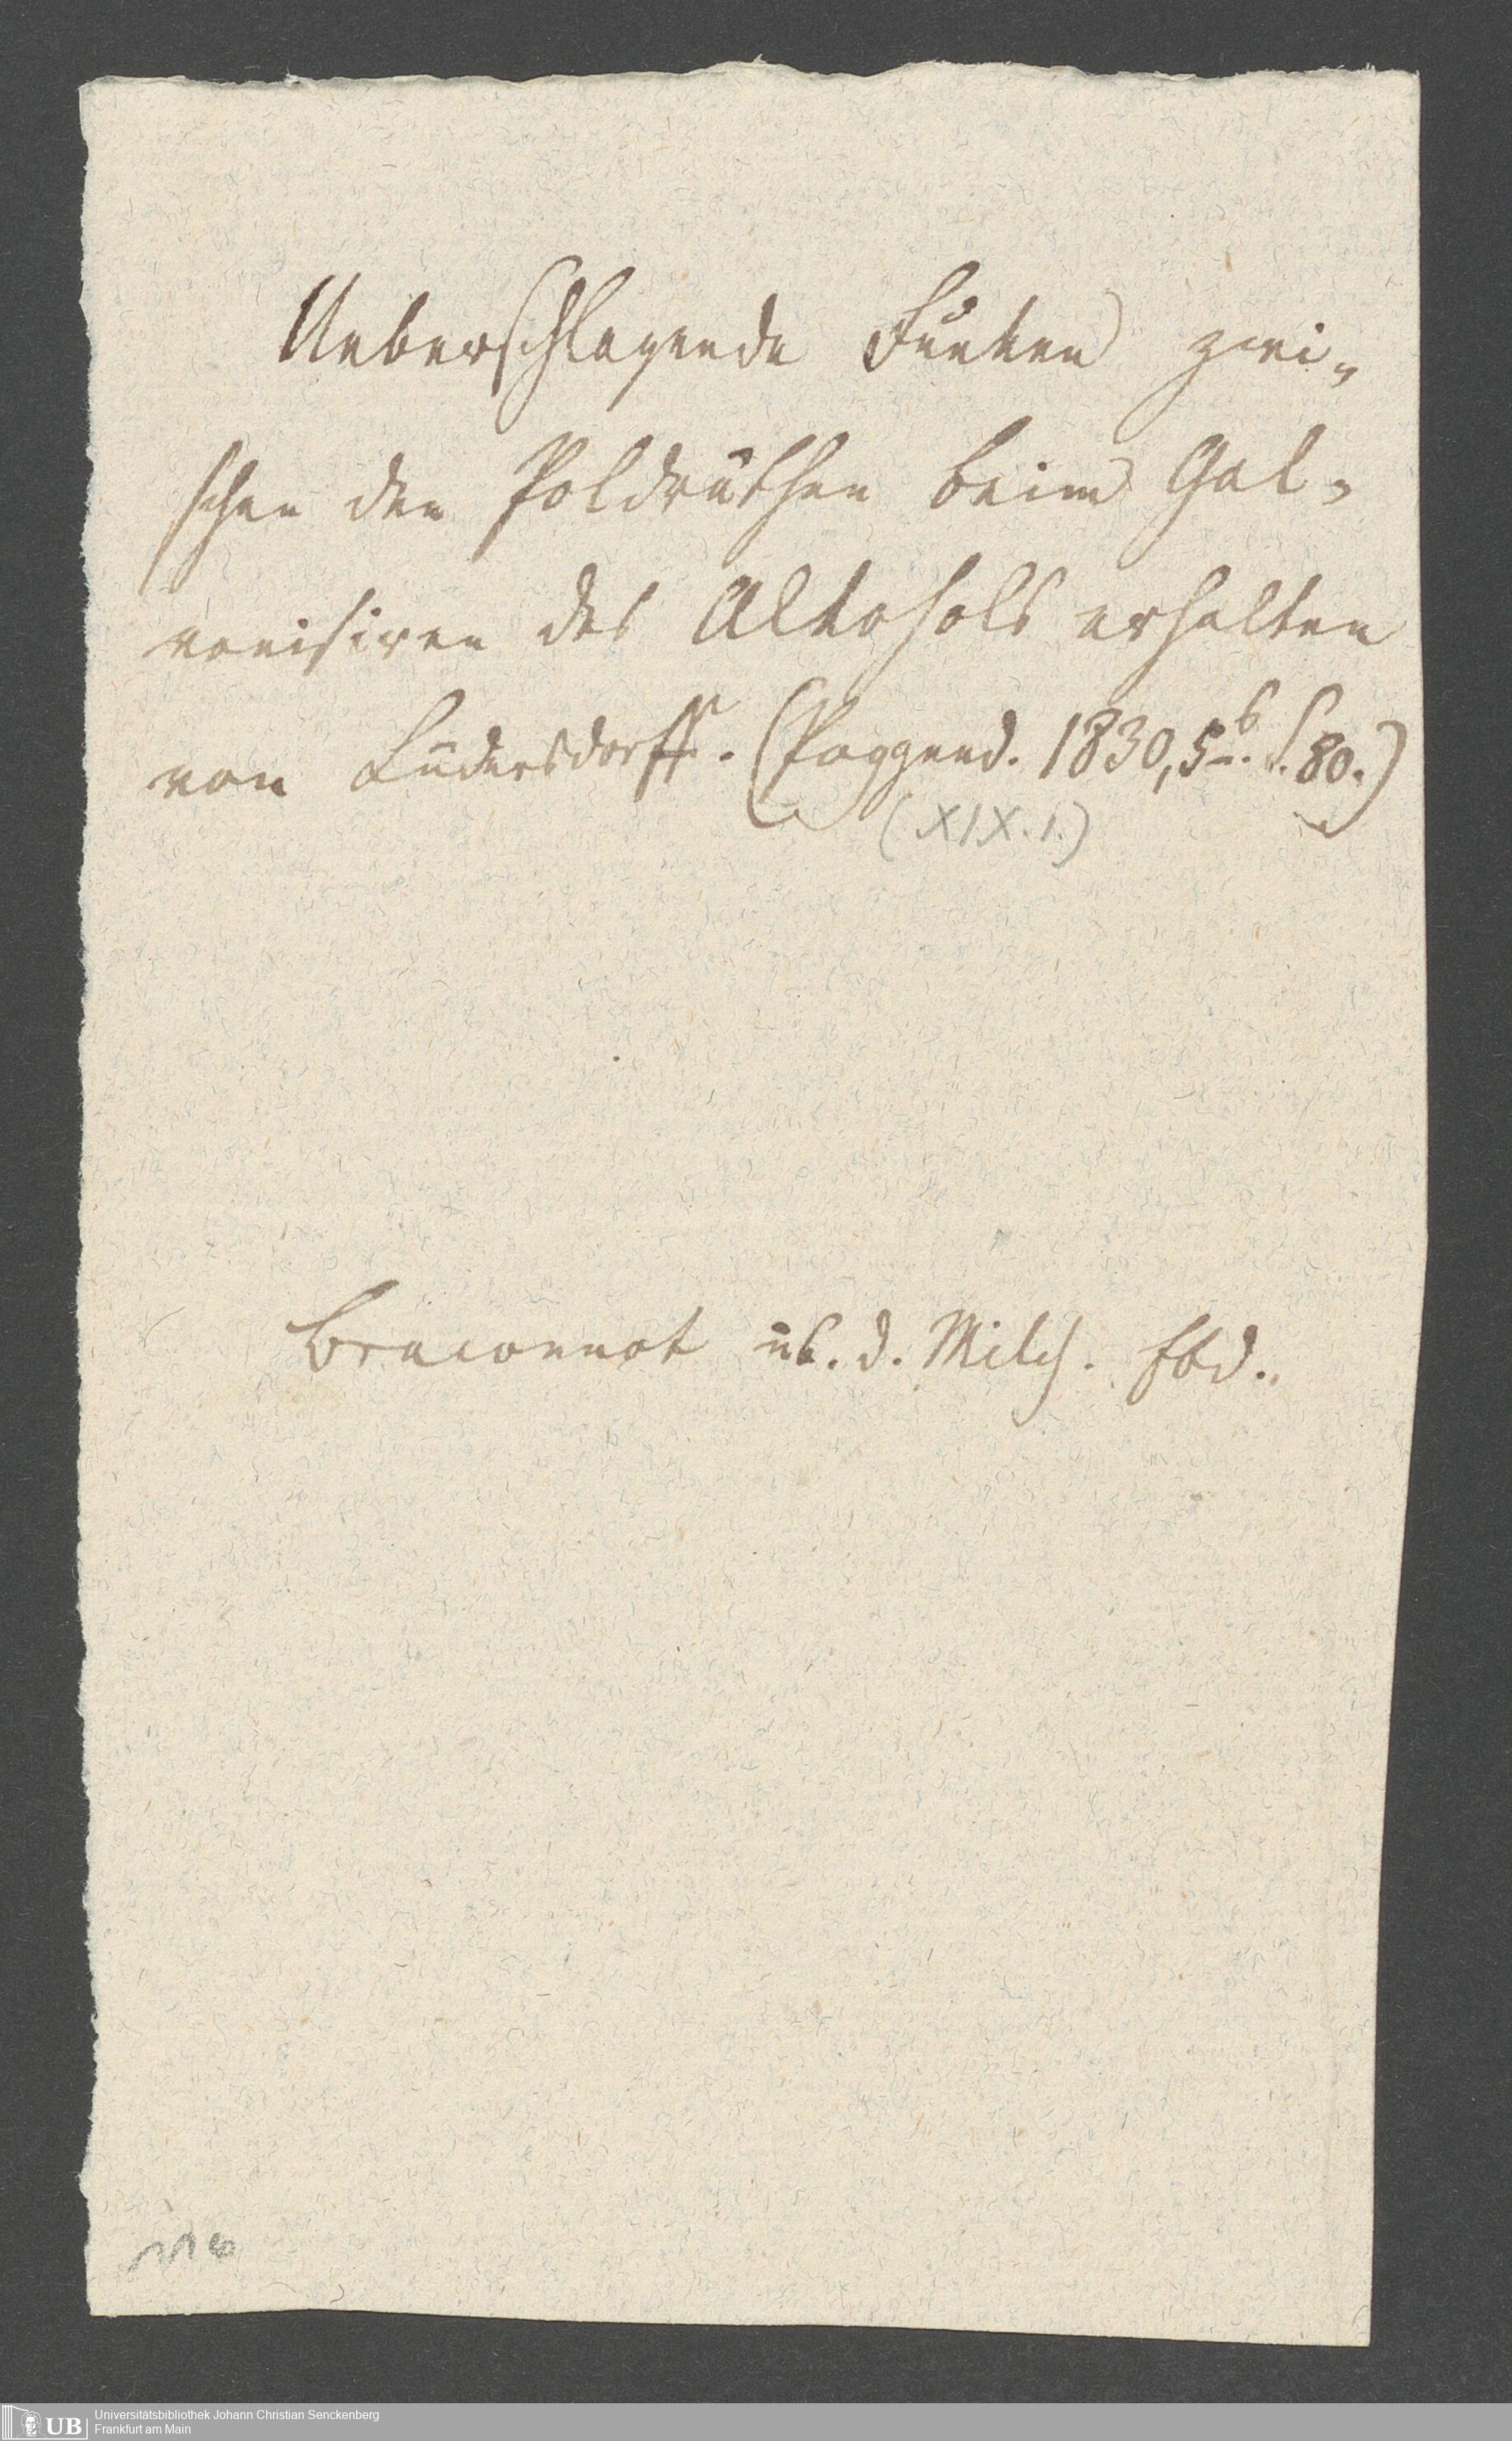 Ueberschlagende Funken zwi„
schen den Poldräthen beim Gal„
vanisiren des Alkohols erhalten
von Lüdersdorff. (Poggend. 1830, 5b. S. 80.)
(XIX. 1.)
Braconnot üb. d. Milch. Ebd..
116
UB
Universitätsbibliothek Johann Christian Senckenberg
Frankfurt am Main